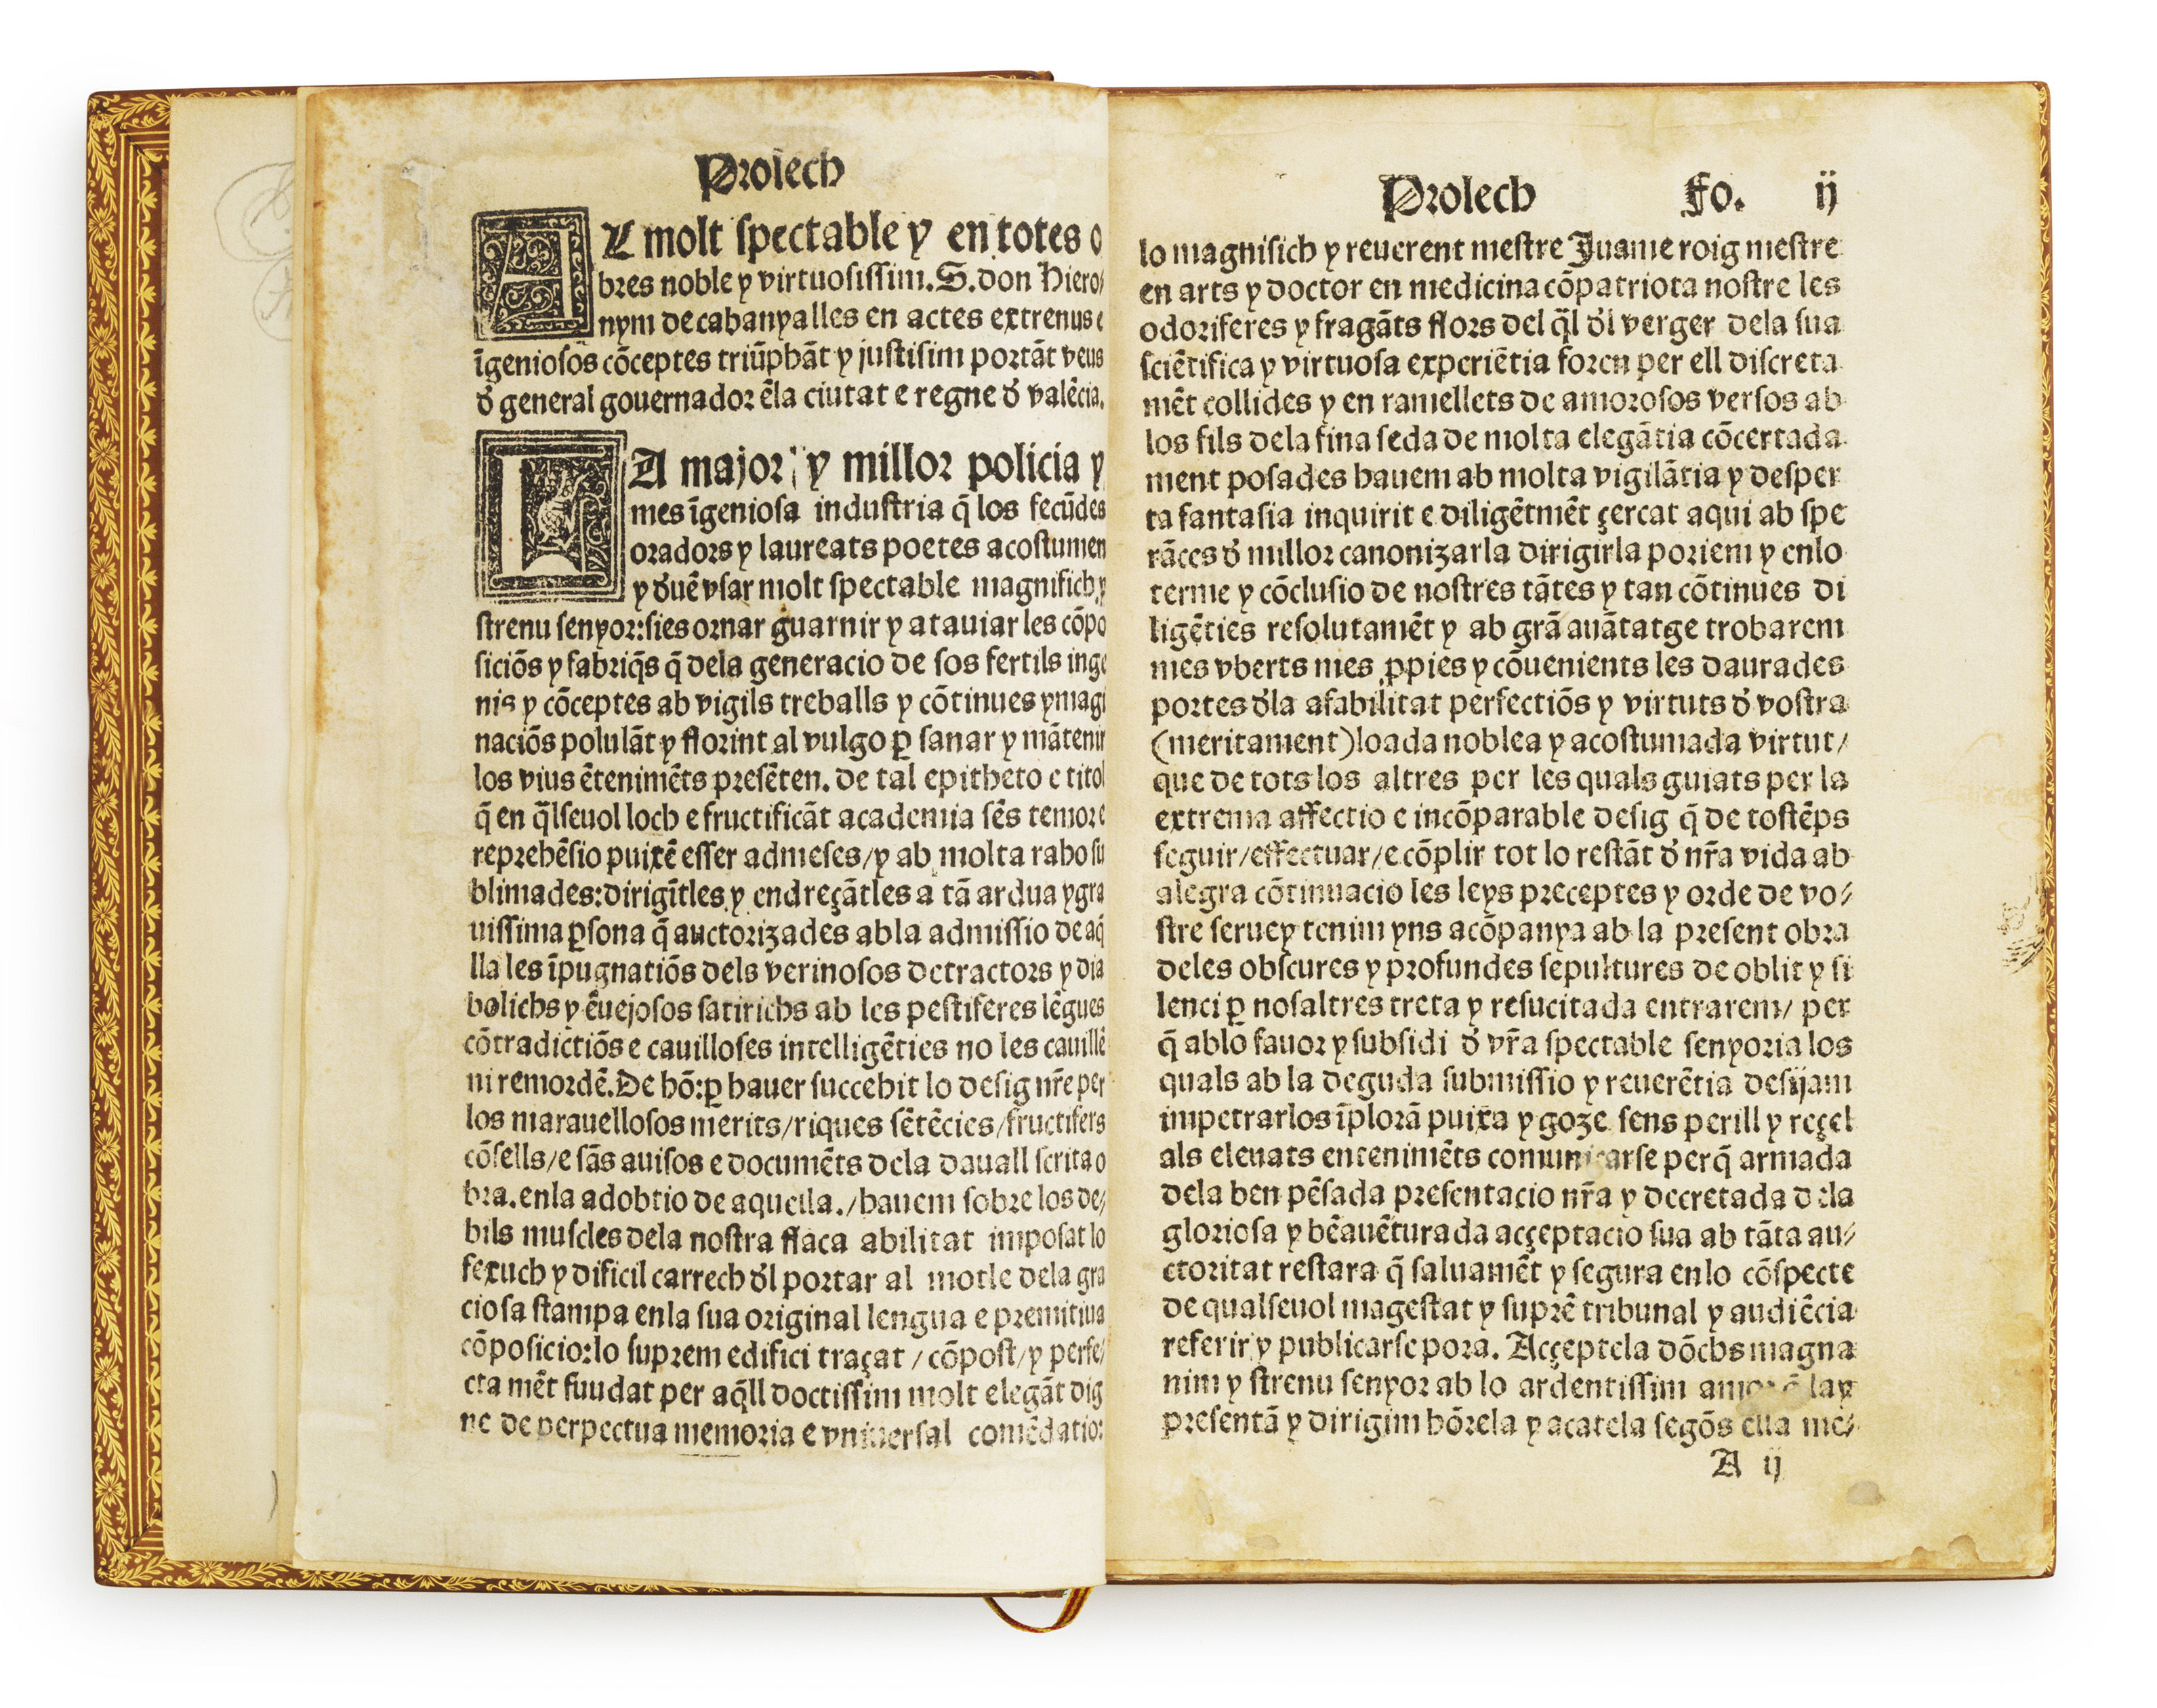 Prolech
AL molt spectable y en totes o
bres noble y virtuosissim. S. don Hiero⸗
nym de cabanyalles en actes extrenus e
īgeniosos cōceptes triūphāt y justisim portāt veus
d̄ general gouernador ēla ciutat e regne d̄ valēcia.
LA major y millor policia y
mes īgeniosa industria q̄ los fecūdes
oradors y laureats poetes acostumen
y d̄uē vsar molt spectable magnifich y
strenu senyor: sies ornar guarnir y atauiar les cōpo
siciōs y fabriq̄s q̄ dela generacio de sos fertils inge
nis y cōceptes ab vigils treballs y cōtinues ymagi
naciōs polulāt y florint al vulgo ꝑ sanar y mātenir
los vius ēteniemēts presēten. de tal epitheto e titol
q̄ en q̄lseuol loch e fructificāt academia sēs temor e
reprehēsio puixē esser admeses/ y ab molta raho su
blimades: dirigītles y endreçātles a tā ardua y gra
uissima ꝑsona q̄ auctorizades ab la admissio de aq̄
lla les īpugnatiōs dels verinosos detractors y dia
bolichs y ēuejosos satirichs ab les pestiferes lēgues
cōtradictiōs e cauilloses intelligēties no les cauillē
ni remordē. De hō: ꝑ hauer succehit lo desig nr̄e per
los marauellosos merits/ riques sētēcies/ fructifers
cōsells/ e sās auisos e documēts dela dauall scrita o
bra. enla adobtio de aquella./ hauem sobre los de⸗
bils muscles dela nostra flaca abilitat imposat lo
fexuch y dificil carrech d̄l portar al motle dela gra
ciosa stampa enla sua original lengua e premitiua
cōposicio: lo suprem edifici traçat / cōpost/ y perfe⸗
cta mēt fuudat per aq̄ll doctissim molt elegāt dig
ne de perpetua memoria e vniuersal comēdatio:
Prolech Fo. ij
lo magnifich y reuerent mestre Juame roig mestre
en arts y doctor en medicina cōpatriota nostre les
odoriferes y fragāts flors del q̄l d̄l verger dela sua
sciētifica y virtuosa experiētia foren per ell discreta
mēt collides y en ramellets de amorosos versos ab
los fils dela fina seda de molta elegātia cōcertada
ment posades hauem ab molta vigilātia y desper
ta fantasia inquirit e diligētmēt çercat aqui ab spe
rāces d̄ millor canonizarla dirigirla poriem y enlo
terme y cōclusio de nostres tātes y tan cōtinues di
ligēties resolutamēt y ab grā auātatge trobarem
mes vberts mes ꝓpies y cōuenients les daurades
portes d̄la afabilitat perfectiōs y virtuts d̄ vostra
(meritament) loada noblea y acostumada virtut/
que de tots los altres per les quals guiats per la
extrema affectio e incōparable desig q̄ de tostēps
seguir/ effectuar/ e cōplir tot lo restāt d̄ nr̄a vida ab
alegra cōtinuacio les leys preceptes y orde de vo⸗
stre seruey tenim yns acōpanya ab la present obra
deles obscures y profundes sepultures de oblit y si
lenci ꝑ nosaltres treta y resucitada entrarem/ per
q̄ ablo fauor y subsidi d̄ vr̄a spectable senyoria los
quals ab la deguda submissio y reuerētia desijam
impetrarlos īplorā puixa y goze sens perill y reçel
als eleuats entenimēts comunicarse perq̄ armada
dela ben pēsada presentacio nr̄a y decretada dela
gloriosa y bēauēturada acçeptacio sua ab tāta au⸗
ctoritat restara q̄ saluamēt y segura enlo cōspecte
de qualseuol magestat y suprē tribunal y audiēcia
referir y publicarse pora. Acçeptela dōchs magna
nim y strenu senyor ab lo ardentissim amor q̄ lay
presentā y dirigim hōrela y acatela segōs ella me⸗
A ij